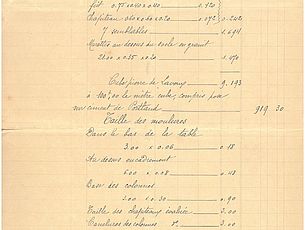 fût 0.75 x 0.40 x 0.40 0.120
Chapiteau 0.60 x 0.60 x 0.20 0.072 0.242
7 semblables 1.694
au dessus du socle en granit
2.00 x 0.35 x 0.20 0.170
Cube pierre de Lavoux 9.193
à 100f,00 le mètre cube, compris pose
au ciment de Portland 919 30
Taille des moulures
Dans le bas de la table
3.00 x 0.06 0.18
Au dessus encadrement
6.00 x 0.08 0.48
Base des colonnes
3.00 x 0.30 0.90
Taille des chapiteaux 3.00
Cannelures des colonnes 2.00